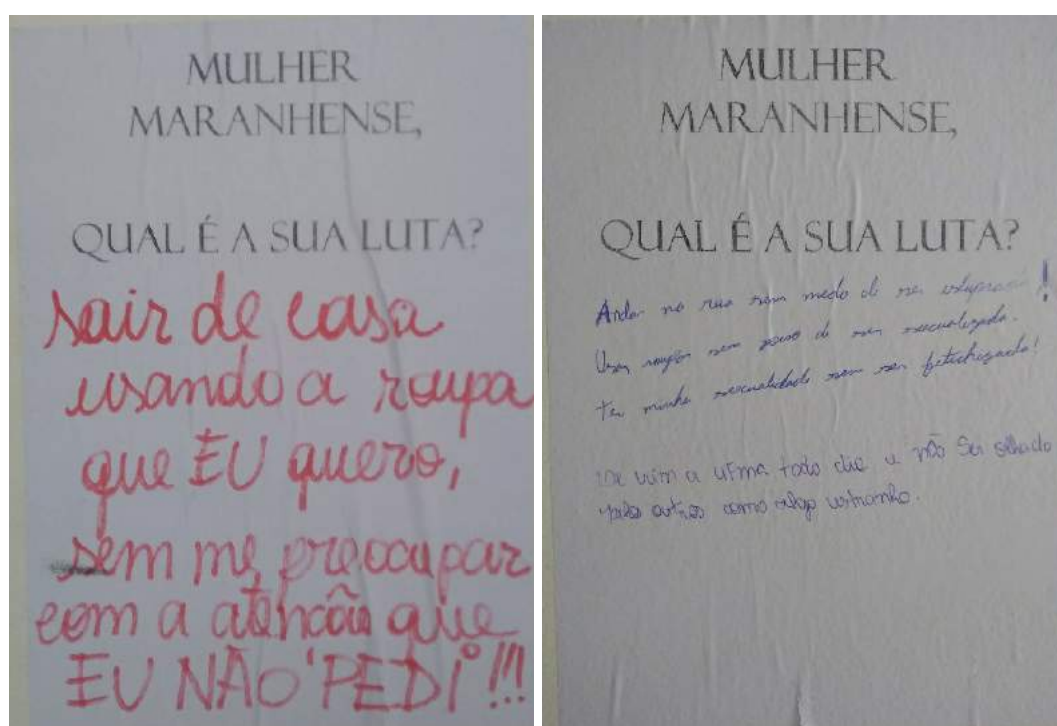 MULHER
MARANHENSE,
QUAL É A SUA LUTA?
sair de casa
usando a roupa
que EU quero,
sem me preocupar
com a atenção que
EU NÃO 'PEDI'!!!
MULHER
MARANHENSE,
QUAL É A SUA LUTA?
Andar na rua sem medo de ser estuprada!
Usar roupas sem de ser sexualizada.
Ter minha sexualidade sem ser fetichizada!
De vim a UFMA todo dia e não ser olhado
pelos outros como algo estranho.